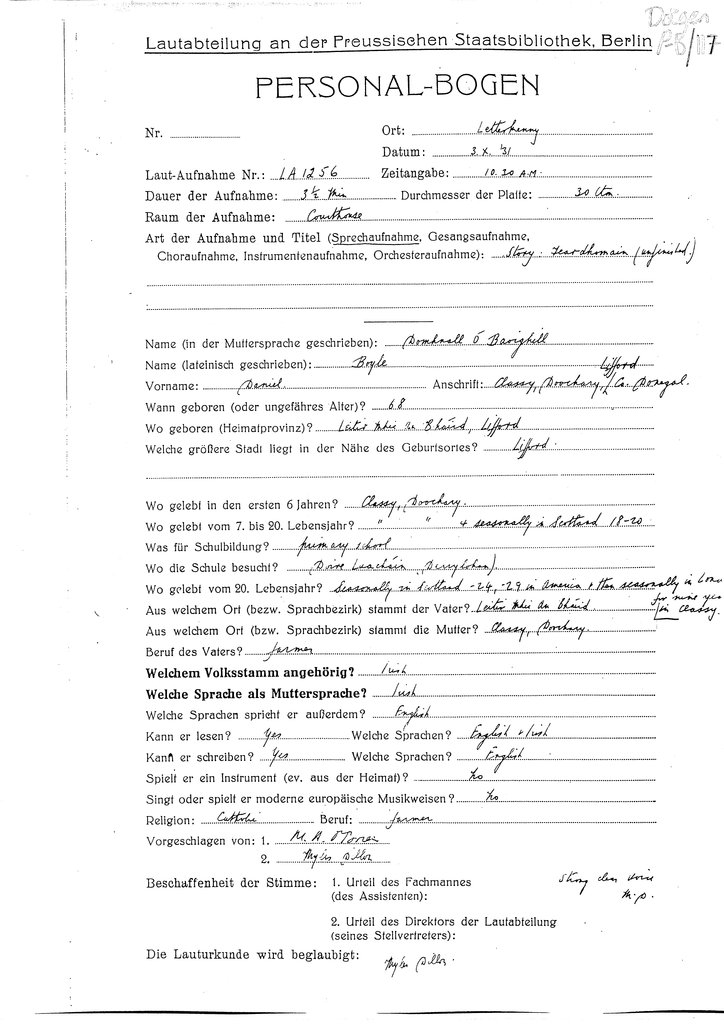 Doegen
Lautabteilung an der Preussischen Staatsbibliothek, Berlin
PERSONAL-BOGEN
Nr.
Ort: Letterkenny
Datum: 3. X. '31
Laut-Aufnahme Nr.: LA 1256 Zeitangabe: 10.30 A.M.
Dauer der Aufnahme: 3½ Min Durchmesser der Platte: 30 Ctm.
Raum der Aufnahme: Courthouse
Art der Aufnahme und Titel (Sprechaufnahme, Gesangsaufnahme,
Choraufnahme, Instrumentenaufnahme, Orchesteraufnahme): Story. (unfinished)
Name (in der Muttersprache geschrieben): Domhnall Ó Baoighill
Name (lateinisch geschrieben): Boyle
Vorname: Daniel Anschrift: Classy, Doochary, Lifford Co. Donegal.
Wann geboren (oder ungefähres Alter)? 68
Wo geboren (Heimatprovinz)? Leitir Lifford
Welche größere Stadt liegt in der Nähe des Geburtsortes? Lifford.
Wo gelebt in den ersten 6 Jahren? Classy, Doochary.
Wo gelebt vom 7. bis 20. Lebensjahr? " " + seasonally in Scotland 18-20
Was für Schulbildung? primary school
Wo die Schule besucht?
Wo gelebt vom 20. Lebensjahr? Seasonally in Scotland -24, -29 in America + then seasonally in
for nine
in Classy.
Aus welchem Ort (bezw. Sprachbezirk) stammt der Vater? Leitir
Aus welchem Ort (bezw. Sprachbezirk) stammt die Mutter? Classy, Doochary.
Beruf des Vaters? farmer
Welchem Volksstamm angehörig? Irish
Welche Sprache als Muttersprache? Irish
Welche Sprachen spricht er außerdem? English
Kann er lesen? Yes Welche Sprachen? English + Irish
Kann er schreiben? Yes Welche Sprachen? English
Spielt er ein Instrument (ev. aus der Heimat)? No
Singt oder spielt er moderne europäische Musikweisen? No
Religion: Catholic Beruf: farmer
Vorgeschlagen von: 1.
2. Myles Dillon
Beschaffenheit der Stimme: 1. Urteil des Fachmannes
(des Assistenten):
Strong clear voice
M.D.
2. Urteil des Direktors der Lautabteilung
(seines Stellvertreters):
Die Lauturkunde wird beglaubigt: Myles Dillon.